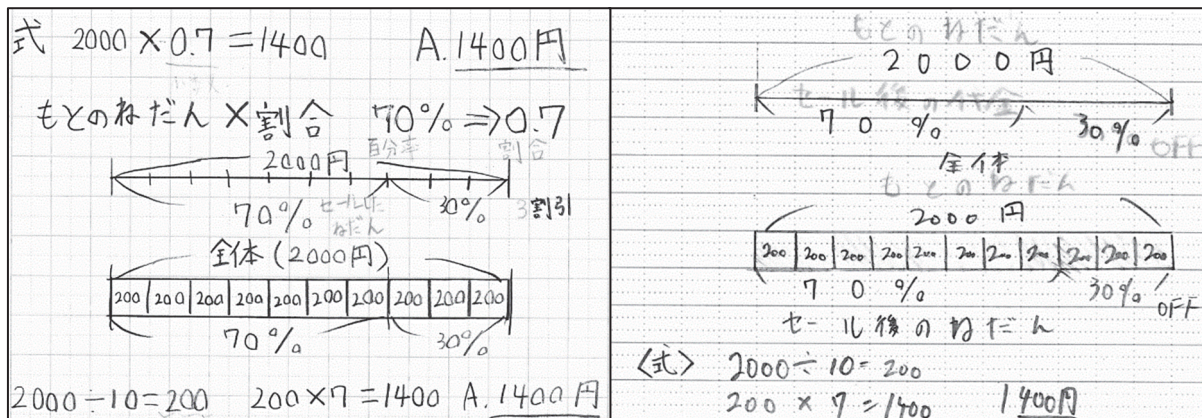 式 2000×0.7=1400 A.1400円
もとのねだん×割合 70%⇒0.7
百分率 割合
2000円
70% セールした ねだん 30% 3割引
全体(2000円)
200 200 200 200 200 200 200 200 200 200
70% 30%
2000÷10=200 200×7=1400 A.1400円
もとのねだん
2000円
セール後の代金
70% 30% OFF
全体
もとのねだん
2000円
200 200 200 200 200 200 200 200 200 200 200
70% 30% OFF
セール後のねだん
〈式〉 2000÷10=200
200×7=1400 1400円